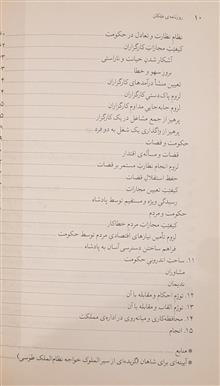 ۱۰ روزنامه‌ی ملکان
نظام نظارت و تعادل در حکومت
کیفیّت مجازات کارگزاران
آشکار شدن خیانت و ناراستی
بروز سهو و خطا
تعیین منشأ درآمدهای کارگزاران
لزوم پاک‌دستی کارگزاران
لزوم جابه‌جایی مداوم کارگزاران
پرهیز از جمع مشاغل در یک کارگزار
پرهیز از واگذاری یک شغل به دو فرد
حکومت و قضات
قضات و مسأله‌ی اقتدار
لزوم انجام نظارت مستمر بر قضات
حفظ استقلال قضات
کیفیّت تعیین مجازات
رسیدگی ویژه و مستقیم توسط پادشاه
حکومت و مردم
کیفیّت مجازات مردم خطاکار
لزوم تأمین نیازهای اقتصادی مردم توسط حکومت
فراهم ساختن دسترسی آسان به پادشاه
۱۱. ساحت اندرونی حکومت
مشاوران
ندیمان
۱۲. تورّم احکام و مقابله با آن
۱۳. تورّم القاب و مقابله با آن
۱۴. محافظه‌کاری و میانه‌روی در اداره‌ی مملکت
۱۵. انجام
* منابع
* آیینه‌ای برای شاهان (گزیده‌ای از سیرالملوک خواجه نظام‌الملک طوسی)